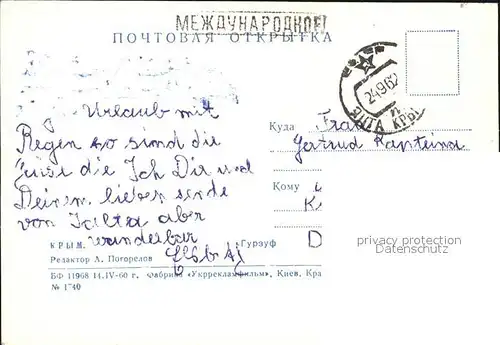 МЕЖДУНАРОДНОЕ
ПОЧТОВАЯ ОТКРЫТКА
24962
ЯЛТА КРЫ
Urlaub mit
Regen so sind die
die Ich Dir und
Deinen lieben sende
von Jalta aber
wunderbar
Куда
Frau
Gertrud
Кому
K
D
КРЫМ.
Гурзуф
Редактор А. Погорелов
БФ 11968 14.IV-60 г. Фабрика «Укррекламфильм», Киев, Кра
№ 1740
privacy protection
Datenschutz